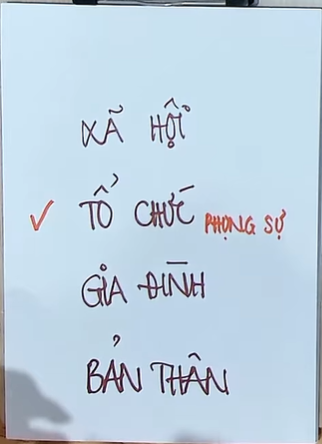 XÃ HỘI
✓ TỔ CHỨC PHỤNG SỰ
GIA ĐÌNH
BẢN THÂN